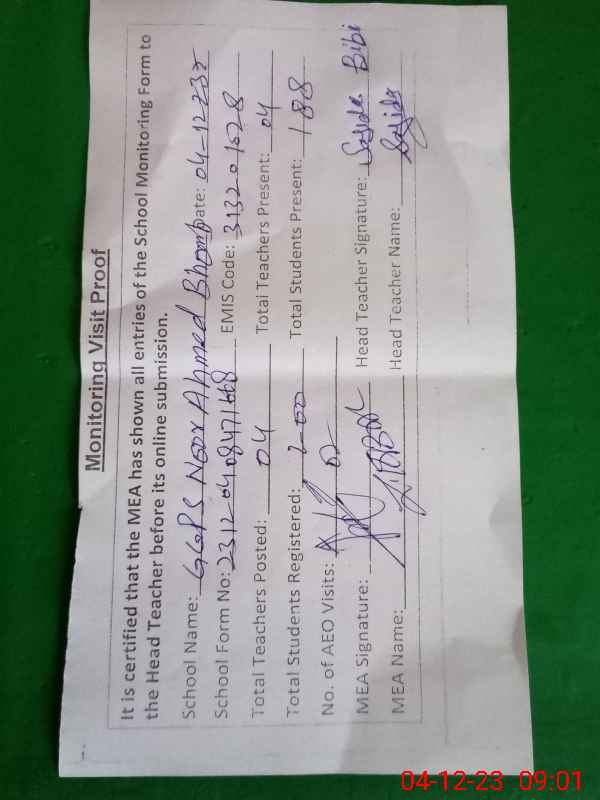 Monitoring Visit Proof
It is certified that the MEA has shown all entries of the School Monitoring Form to
the Head Teacher before its online submission.
School Name: GGPS Noor Ahmed Bhomb Date: 04-12-23
School Form No: EMIS Code: 313201028
Total Teachers Posted: 04 Total Teachers Present: 04
Total Students Registered: 200 Total Students Present: 188
No. of AEO Visits: 02
MEA Signature: Head Teacher Signature: Sajida Bibi
MEA Name: Head Teacher Name: Sajida
04-12-23 09:01